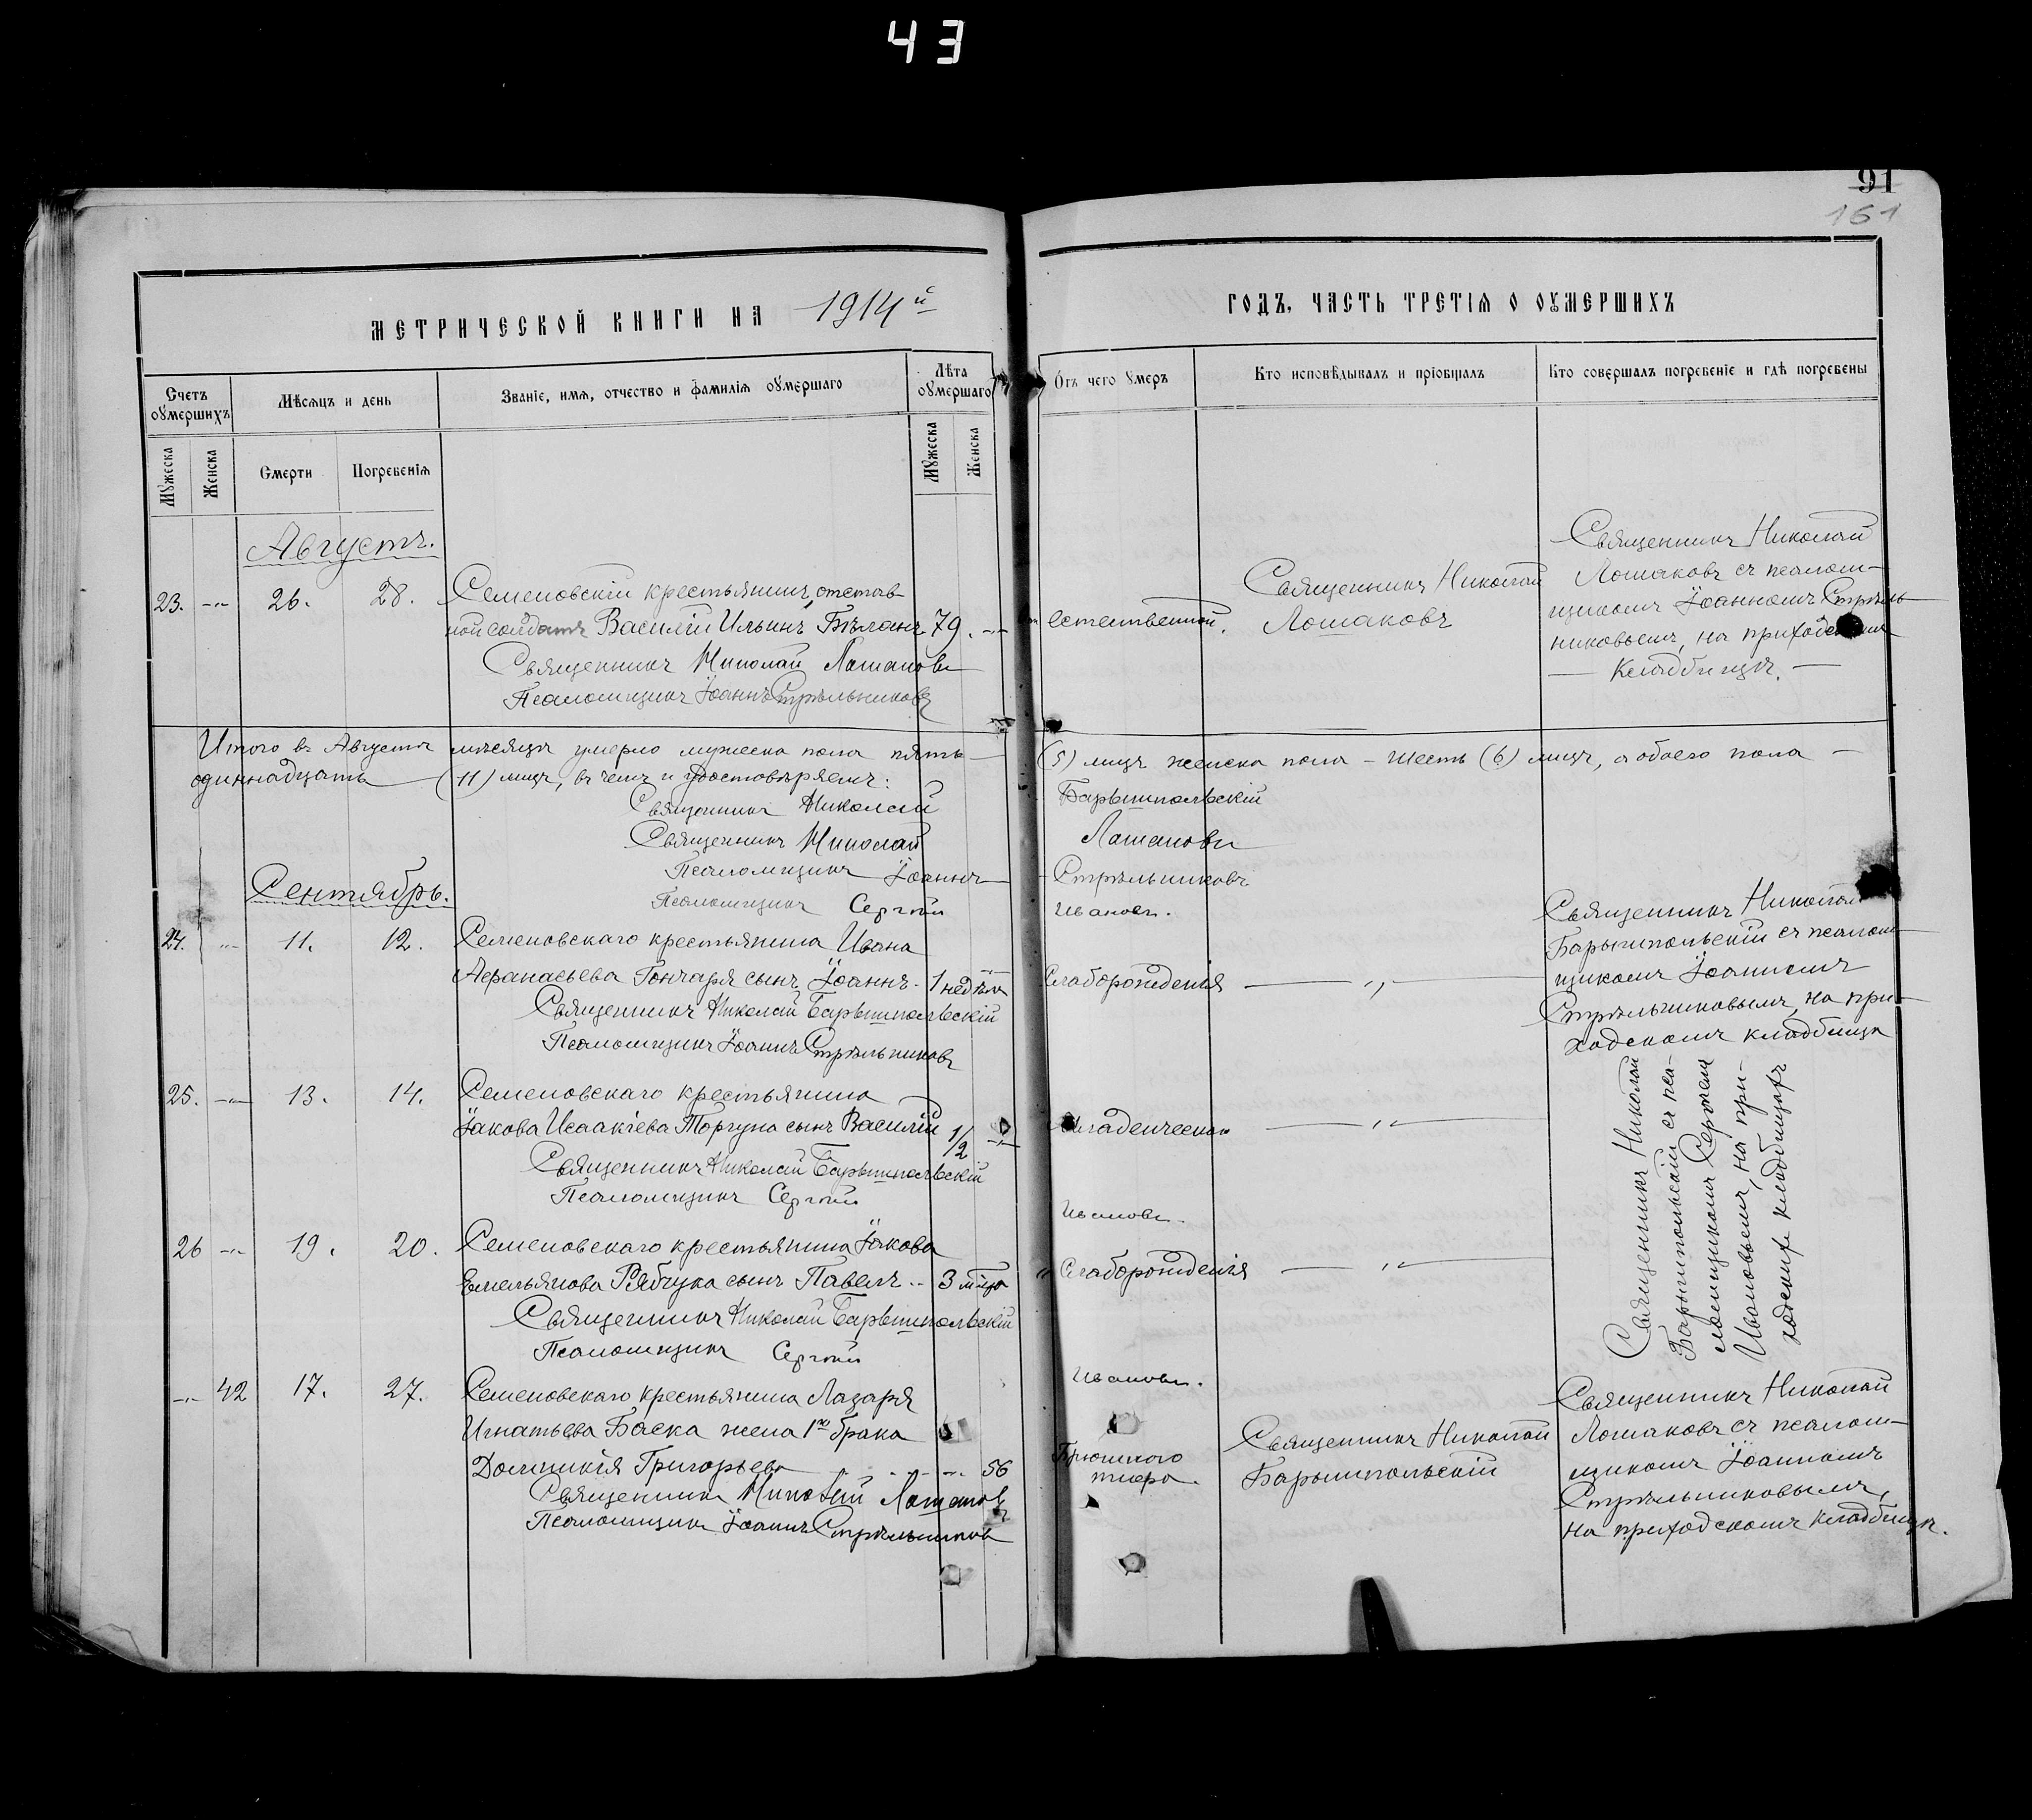 43
91
161
МЕТРИЧЕСКОЙ КНИГИ НА 1914й
ГОДЪ, ЧАСТЬ ТРЕТІѦ О ОУМЕРШИХЪ
Счетъ оумершихъ
Мѣсѧцъ и день
Званіе, имѧ, отчество и фамиліѧ оумершаго
Лѣта оумершаго
Отъ чего умеръ
Кто исповѣдывалъ и пріобщалъ
Кто совершалъ погребеніе и гдѣ погребены
Мужеска
Женска
Смерти
Погребеніѧ
Мужеска
Женска
Августъ.
23. -"- 26. 28.
Семеновскій крестьянинъ, отстав-
ной солдатъ Василій Ильинъ Бѣланъ 79. -"-
Священникъ Николай Лошаковъ
Псаломщикъ Іоаннъ Стрѣльниковъ
Естественной.
Священникъ Николай
Лошаковъ
Священникъ Николай
Лошаковъ съ псалом-
щикомъ Іоанномъ Стрѣль-
никовымъ, на приходскомъ
кладбищѣ.
Итого въ Августѣ мѣсяцѣ умерло мужеска пола пять (5) лицъ женска пола - шесть (6) лицъ, а обоего пола
одиннадцать (11) лицъ, въ чемъ и удостовѣряемъ:
Священникъ Николай Барышпольскій
Священникъ Николай Лошаковъ
Псаломщикъ Іоаннъ Стрѣльниковъ
Псаломщикъ Сергѣй Ивановъ.
Сентябрь.
24. -"- 11. 12.
Семеновскаго крестьянина Ивана
Афанасьева Гончаря сынъ Іоаннъ. 1 недѣля
Священникъ Николай Барышпольскій
Псаломщикъ Іоаннъ Стрѣльниковъ
Слаборожденія
-"-
Священникъ Николай
Барышпольскій съ псалом-
щикомъ Іоанномъ
Стрѣльниковымъ, на при-
ходскомъ кладбищѣ
25. -"- 13. 14.
Семеновскаго крестьянина
Іакова Исаакіева Торгуна сынъ Василій 1/2 -"-
Священникъ Николай Барышпольскій
Псаломщикъ Сергѣй Ивановъ.
Младенческой
-"-
Священникъ Николай
Барышпольскій съ пса-
ломщикомъ Сергѣемъ
Ивановымъ, на при-
ходскихъ кладбищахъ
26 -"- 19. 20.
Семеновскаго крестьянина Іакова
Емельянова Рябчука сынъ Павелъ 3 мѣца
Священникъ Николай Барышпольскій
Псаломщикъ Сергѣй Ивановъ.
Слаборожденія
-"-
-"- 42 17. 27.
Семеновскаго крестьянина Лазаря
Игнатьева Баска жена 1го брака
Домникія Григорьева -"- 56
Священникъ Николай Лошаковъ
Псаломщикъ Іоаннъ Стрѣльниковъ
Брюшного
тифа.
Священникъ Николай
Барышпольскій
Священникъ Николай
Лошаковъ съ псалом-
щикомъ Іоанномъ
Стрѣльниковымъ,
на приходскомъ кладбищѣ.